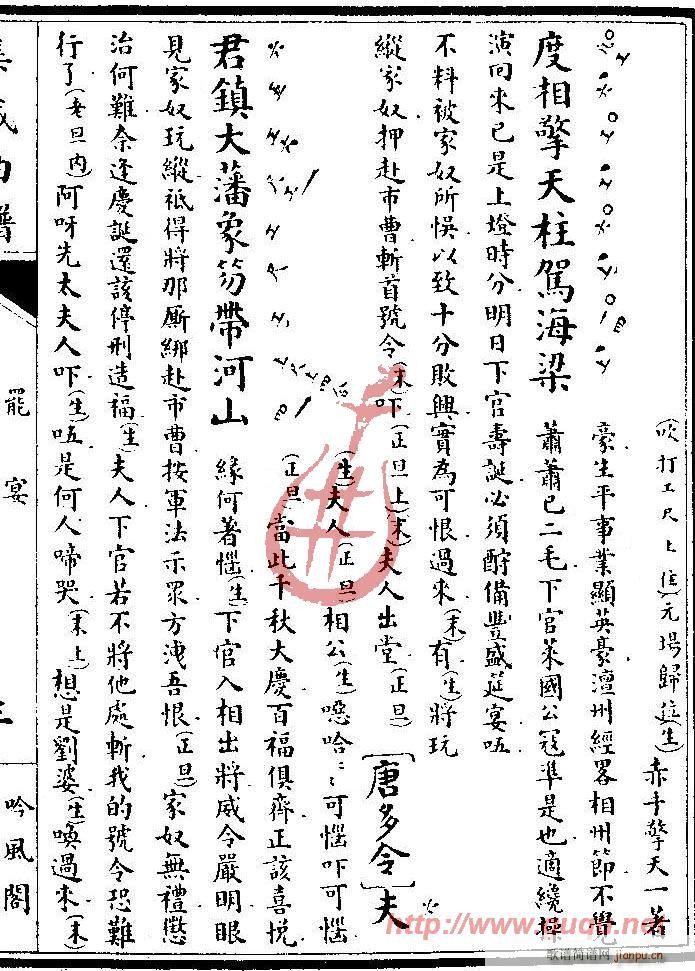 度相擎天柱駕海梁
(吹打工尺上住)元場歸位(生)赤手擎天一著
豪生平事業顯英豪澶州經畧相州節不覺
蕭蕭已二毛下官萊國公寇準是也適纔操
演回來已是上燈時分明日下官壽誕必須酧備豐盛延宴㕶
不料被家奴所悞以致十分敗興實為可恨過來(末)有(生)將玩
縱家奴押赴市曹斬首號令(末)吓(正旦上)(末)夫人出堂(正旦)[唐多令]夫
君鎮大藩象笏帶河山
(生)夫人(正旦)相公(生)噁哈〻可惱吓可惱
(正旦)當此千秋大慶百福俱齊正該喜悅
緣何著惱(生)下官入相出將威令嚴明眼
見家奴玩縱祗得將那厮綁赴市曹按軍法示眾方洩吾恨(正旦)家奴無禮懲
治何難奈逢慶誕還該停刑造福(生)夫人下官若不將他處斬我的號令恐難
行了(老旦內)阿呀先太夫人吓(生)㕶是何人啼哭(末上)想是劉婆(生)喚過來(末)
集成曲譜
罷宴
三
吟風閣
http://www.ququn.net/
歌谱简谱网
jianpu.cn